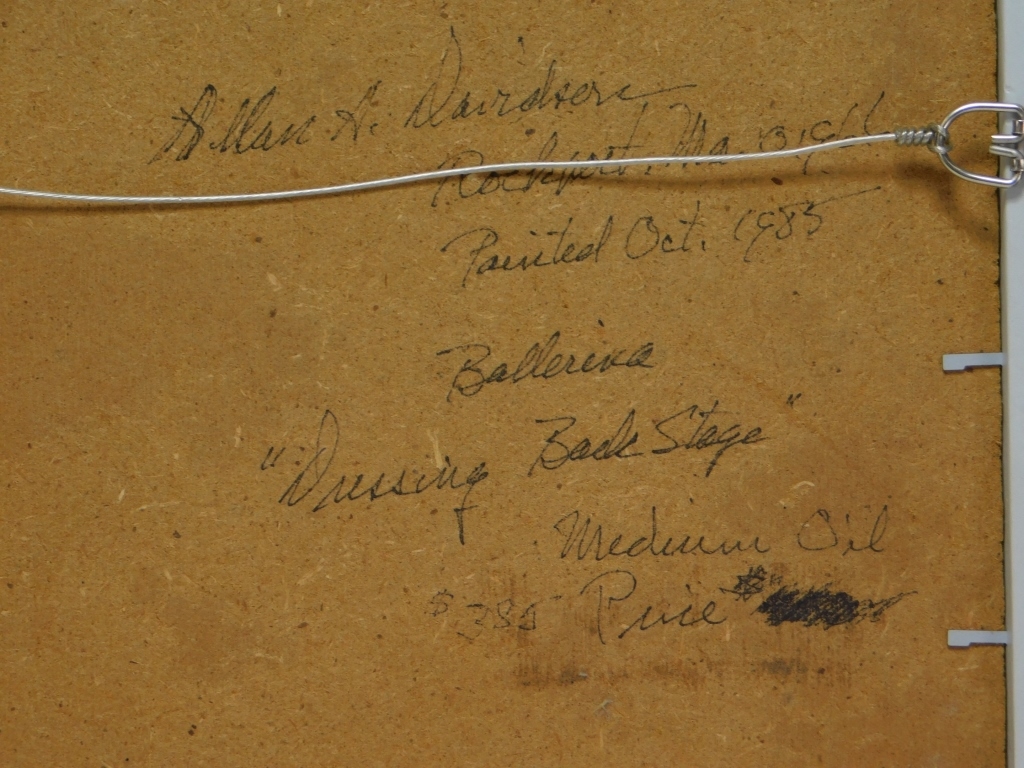 Allan A. Davidson
Rockport, Ma. 01966
Painted Oct. 1985
Ballerina
"Dressing Back Stage"
Medium Oil
$385 Price $